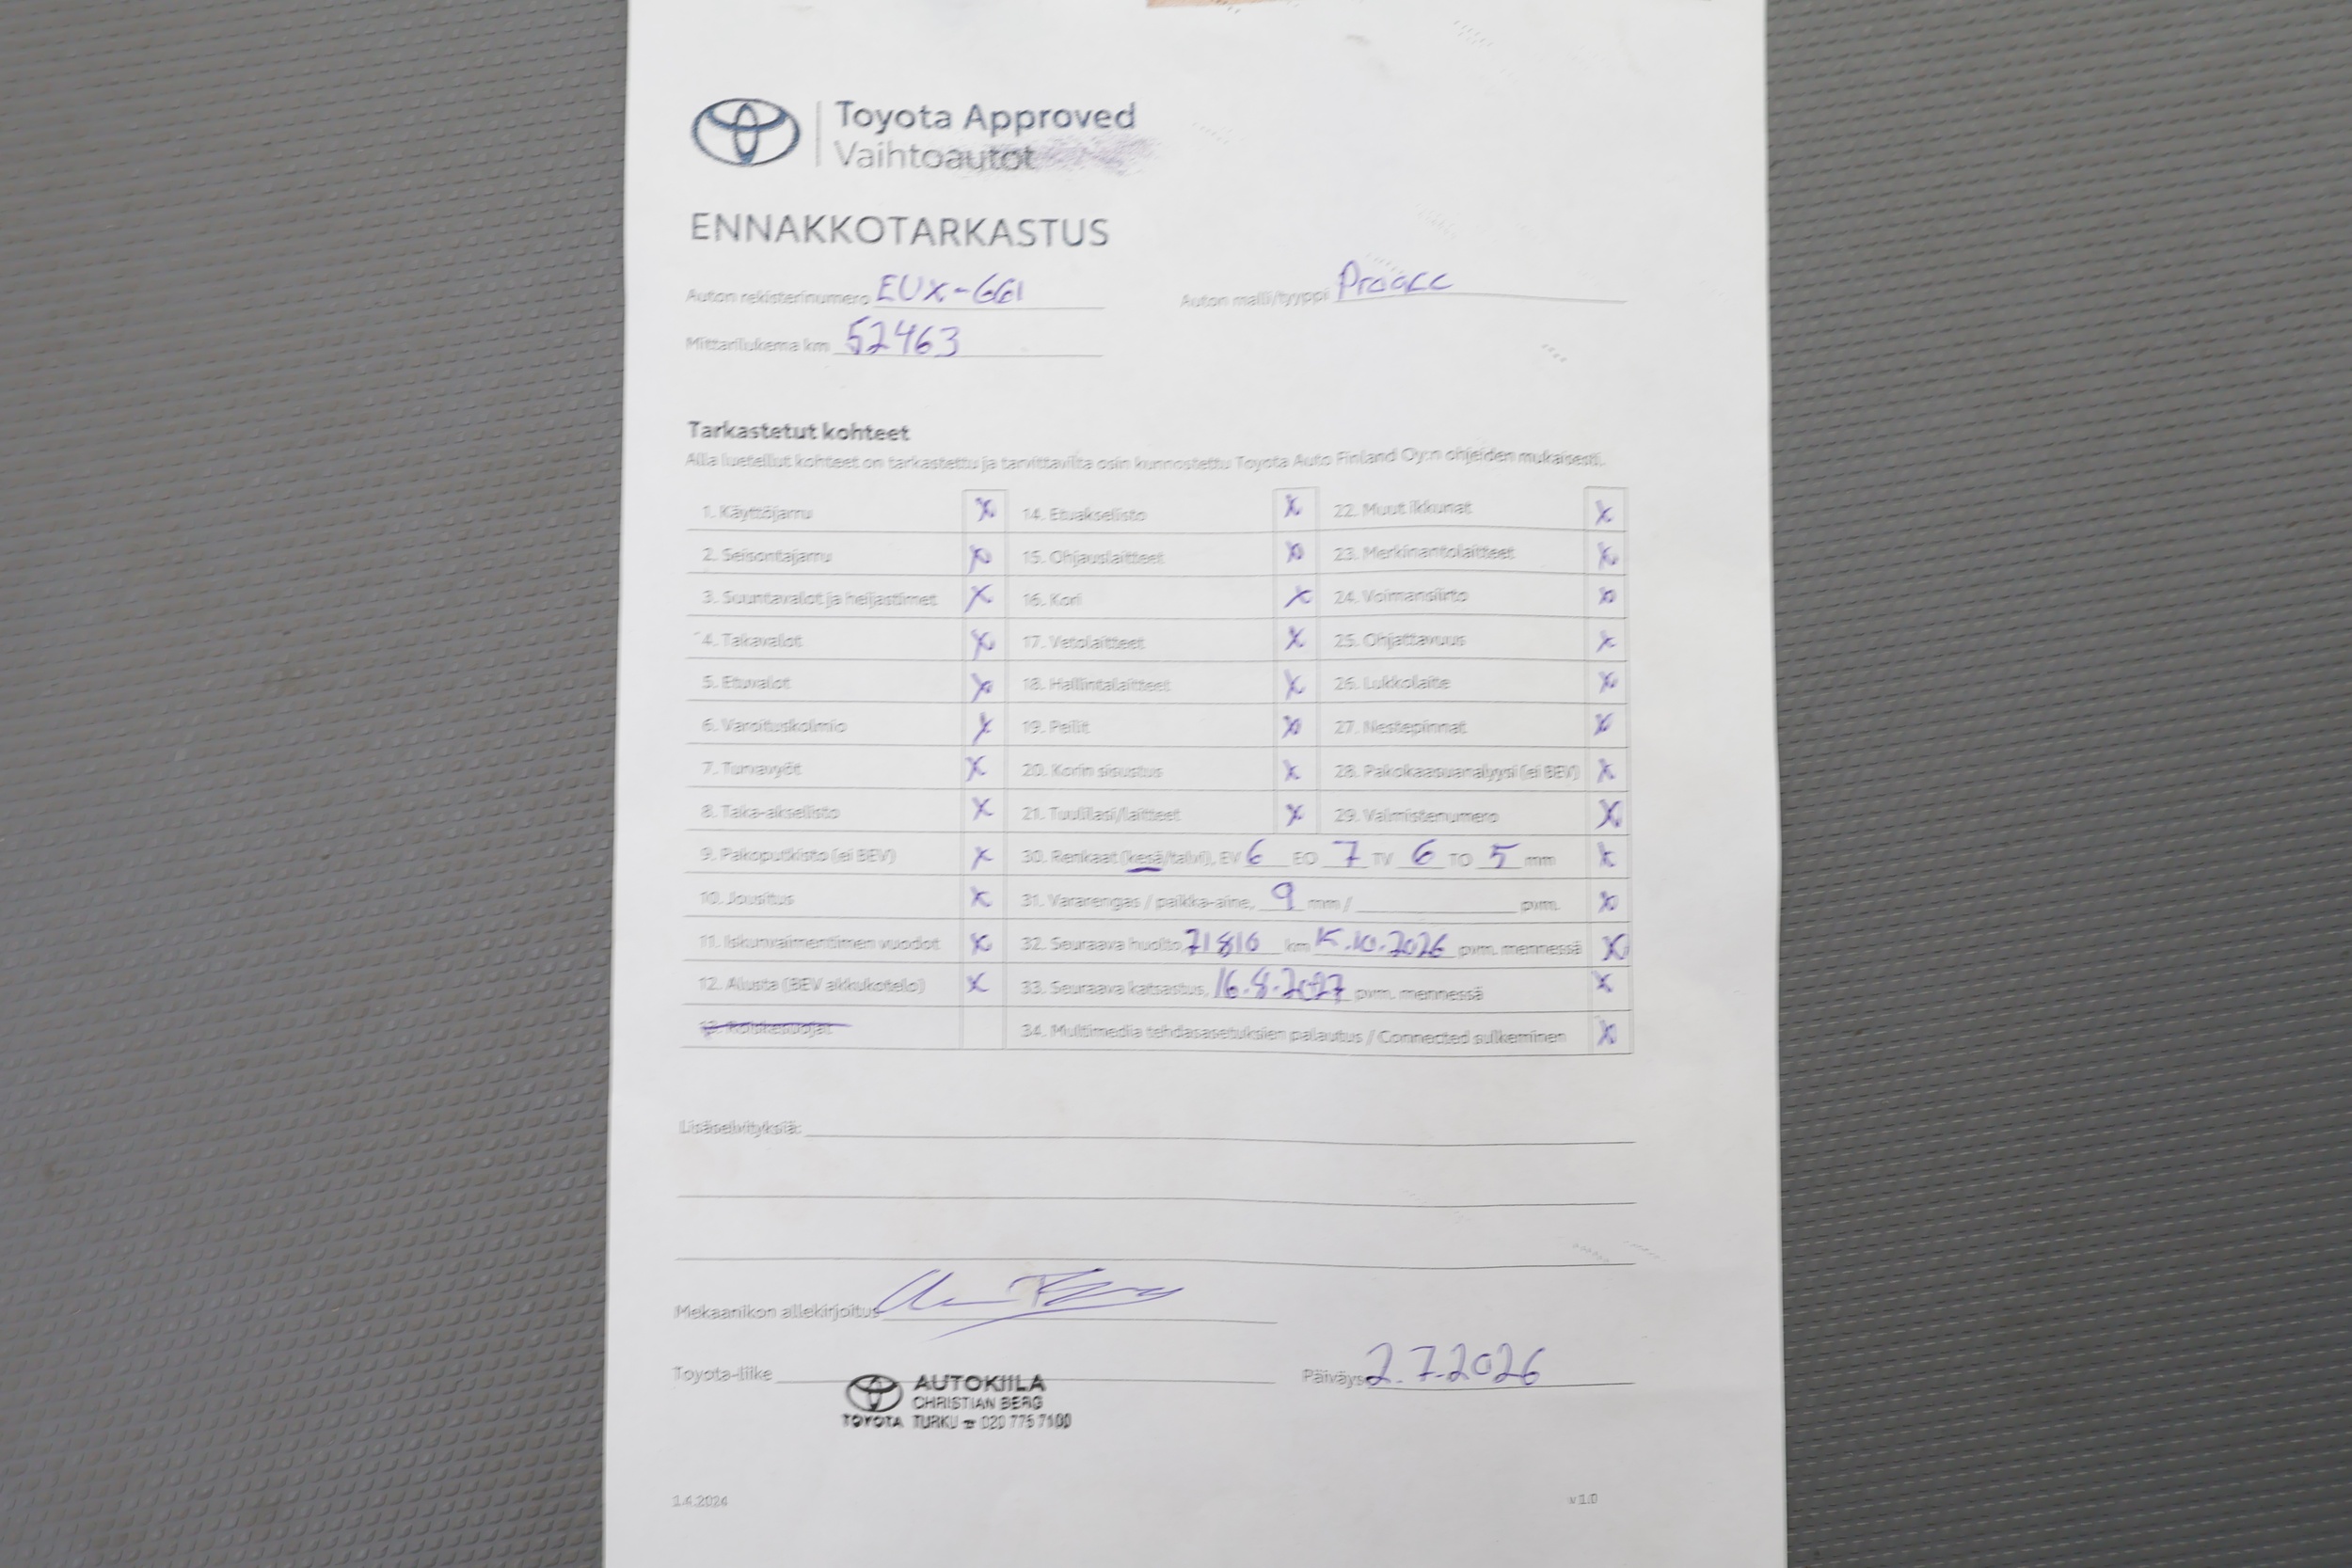 Toyota Approved
Vaihtoautot
ENNAKKOTARKASTUS
Auton rekisterinumero EUX-661 Auton malli/tyyppi Proace
Mittarilukema km 52463
Tarkastetut kohteet
Alla luetellut kohteet on tarkastettu ja tarvittavilta osin kunnostettu Toyota Auto Finland Oy:n ohjeiden mukaisesti.
1. Käyttöjarru X 14. Etuakselisto X 22. Muut ikkunat X
2. Seisontajarru X 15. Ohjauslaitteet X 23. Merkinantolaitteet X
3. Suuntavalot ja heijastimet X 16. Kori X 24. Voimansiirto X
4. Takavalot X 17. Vetolaitteet X 25. Ohjattavuus X
5. Etuvalot X 18. Hallintalaitteet X 26. Lukkolaite X
6. Varoituskolmio X 19. Peilit X 27. Nestepinnat X
7. Turvavyöt X 20. Korin sisustus X 28. Pakokaasuanalyysi (ei BEV) X
8. Taka-akselisto X 21. Tuulilasi/laitteet X 29. Valmistenumero X
9. Pakoputkisto (ei BEV) X 30. Renkaat (kesä/talvi), EV 6 EO 7 TV 6 TO 5 mm X
10. Jousitus X 31. Vararengas / paikka-aine, 9 mm / pvm. X
11. Iskunvaimentimen vuodot X 32. Seuraava huolto 71810 km 15.10.2026 pvm. mennessä X
12. Alusta (BEV akkukotelo) X 33. Seuraava katsastus, 16.8.2027 pvm. mennessä X
13. Roiskesuojat 34. Multimedia tehdasasetuksien palautus / Connected sulkeminen X
Lisäselvityksiä:
Mekaanikon allekirjoitus
Toyota-liike Päiväys 2.7.2026
AUTOKIILA
CHRISTIAN BERG
TOYOTA TURKU ☎ 020 775 7100
1.4.2024 v 1.0